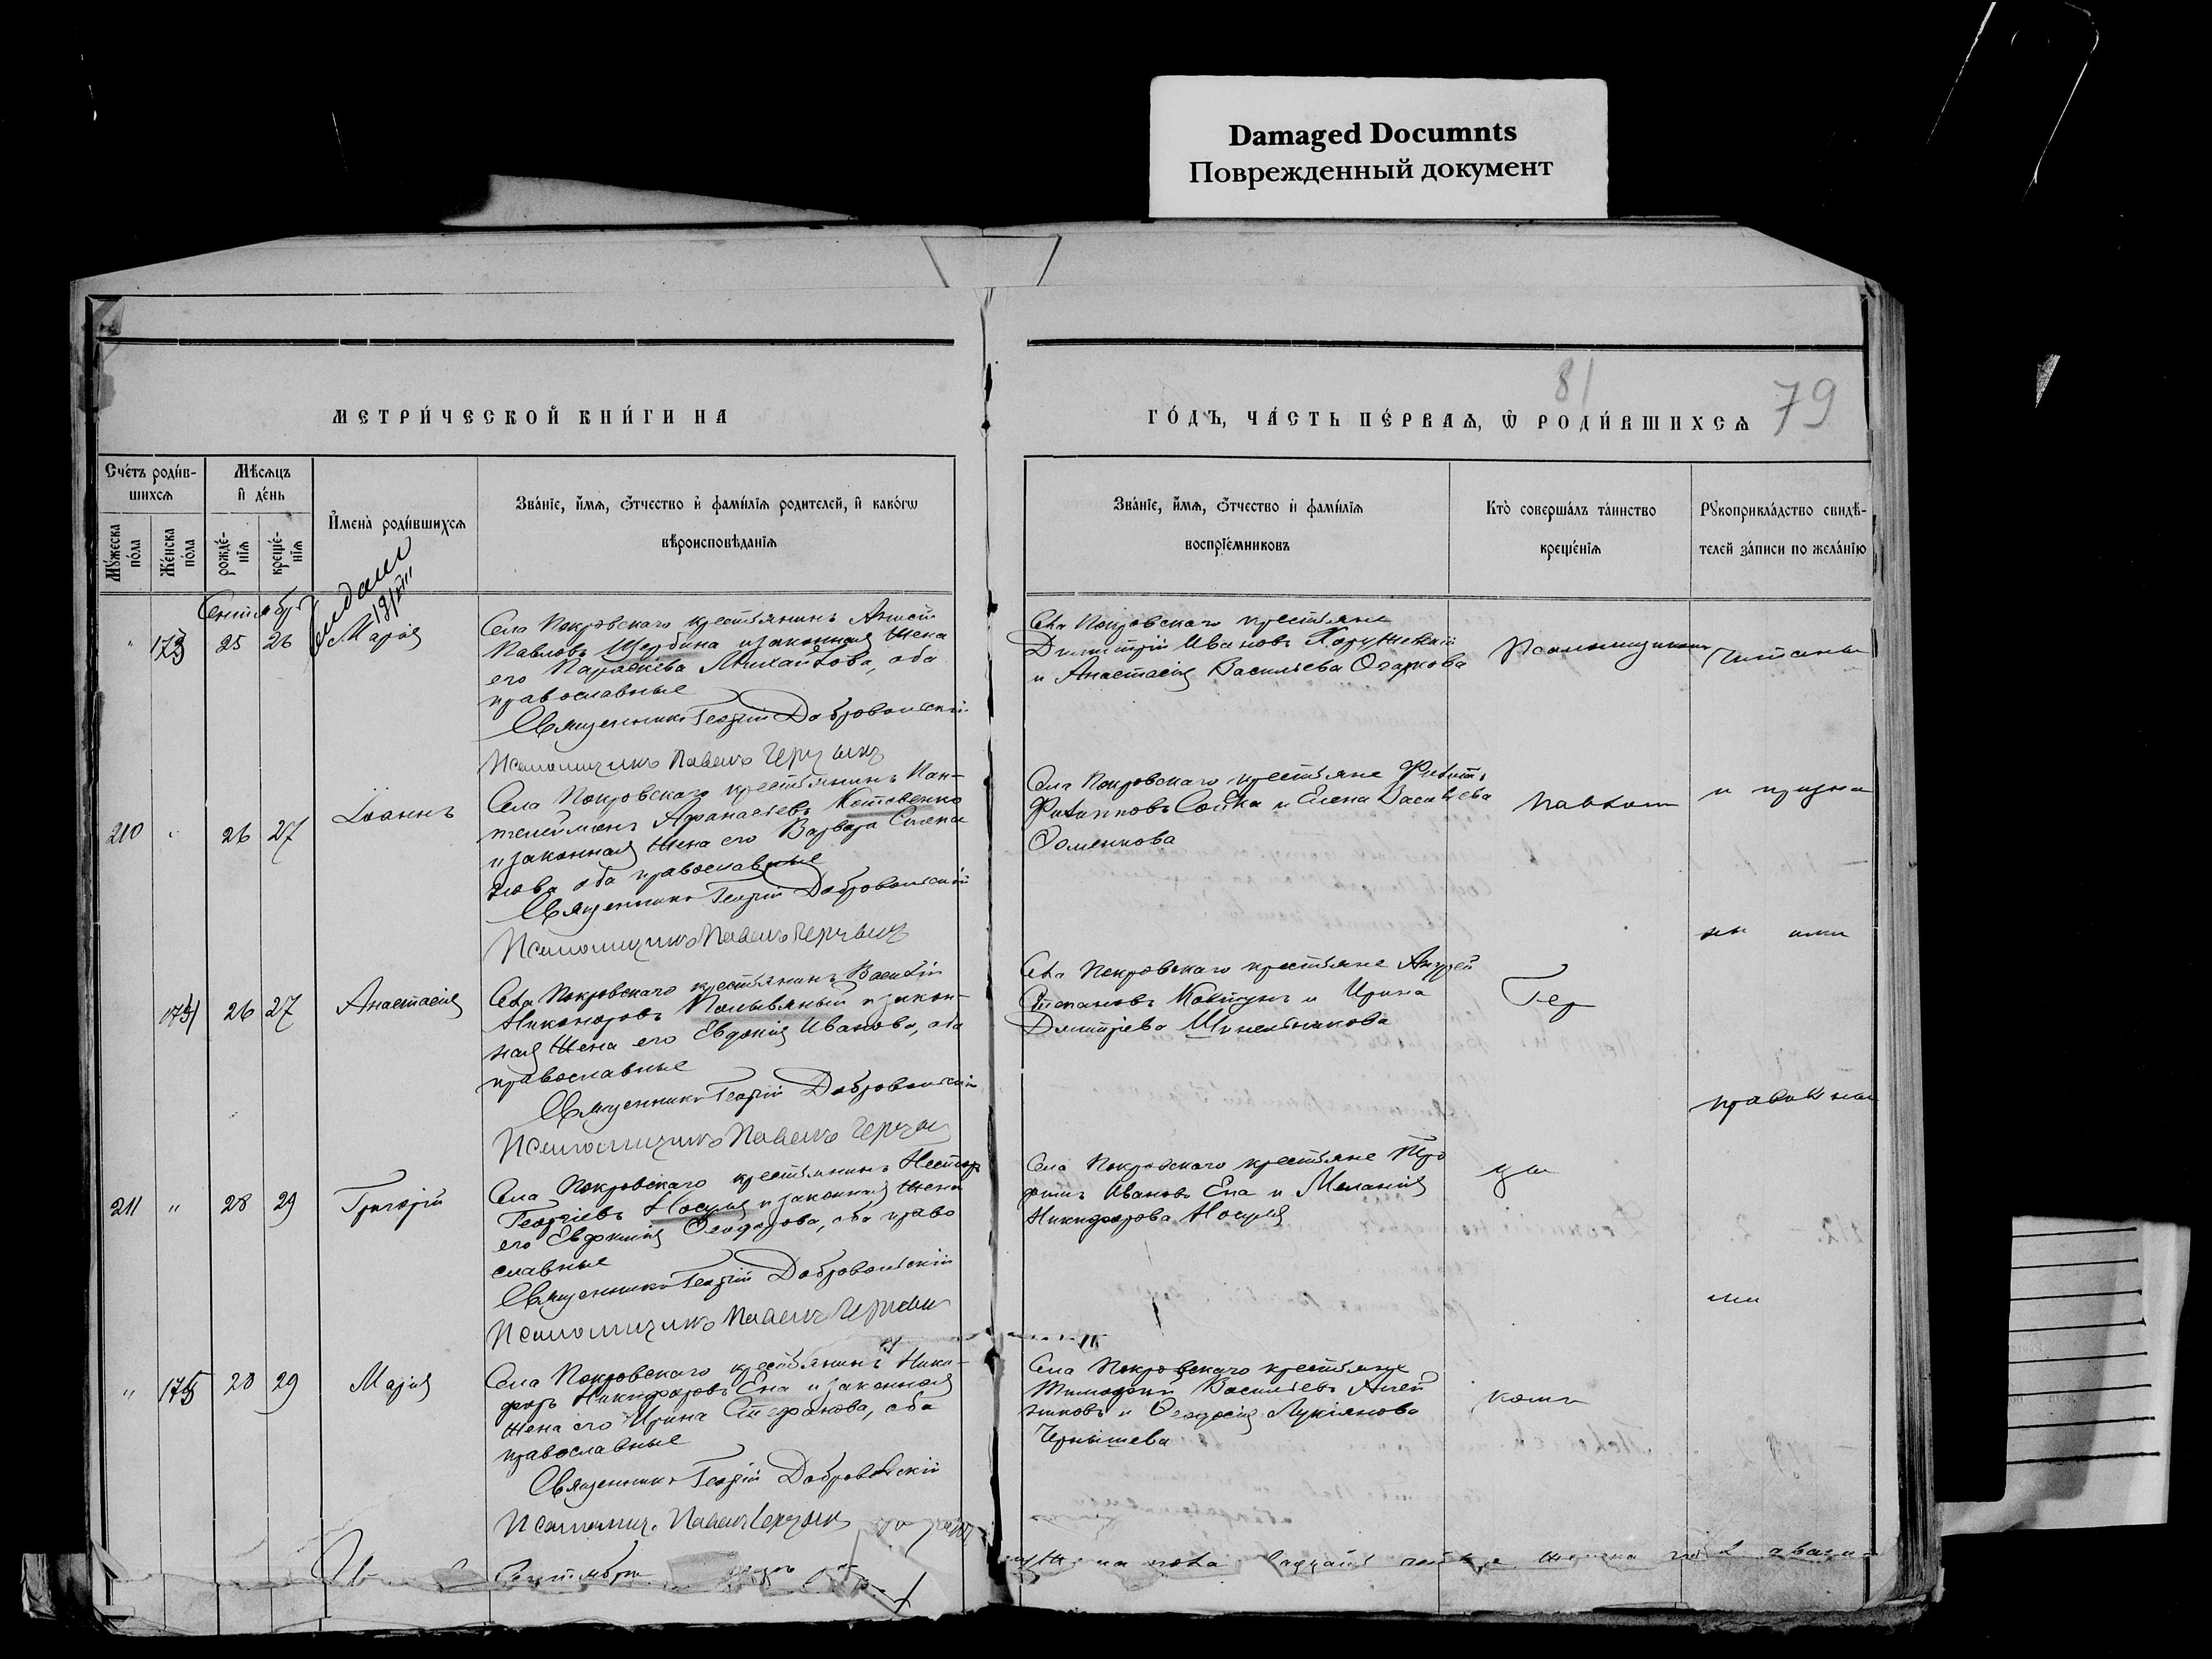 Damaged Documnts
Поврежденный документ
81
79
МЕТРИ́ЧЕСКОЙ КНИ́ГИ НА
ГО́ДЪ, ЧА́СТЬ ПЕ́РВАѦ, Ѡ҆ РОДИ́ВШИХСѦ
Сче́тъ роди́в-
шихсѧ
Мꙋ́жеска по́ла
Же́нска по́ла
Мѣ́сѧцъ
и҆ де́нь
рожде́-
нїѧ
креще́-
нїѧ
И҆мена̀ роди́вшихсѧ
Зва́нїе, и҆́мѧ, ѻ҆́тчество и҆ фами́лїѧ родителей, и҆ како́гѡ
вѣроисповѣданїѧ
Зва́нїе, и҆́мѧ, ѻ҆́тчество и҆ фами́лїѧ
воспрїе́мниковъ
Кто̀ соверша́лъ та́инство
креще́нїѧ
Рꙋкоприкла́дство свидѣ́-
телей за́писи по жела́нїю
Сентябр
" 173 25 26 Марія
Села Покровскаго крестьянинъ
Павловъ Щербина и законная жена
его Параскева Михайлова, оба
православные
Священникъ Георгій Добровольскій
Псаломщикъ Павелъ
Села Покровскаго крестьяне
Димитрій Ивановъ
и Анастасія Васильева Огаркова
Псаломщикомъ
Читаны
210 " 26 27 Іоаннъ
Села Покровскаго крестьянинъ Пан-
телеймонъ Афанасьевъ Котовенко
и законная жена его Варвара Симео
нова оба православные
Священникъ Георгій Добровольскій
Псаломщикъ Павелъ
Села Покровскаго крестьяне Филипъ
Филипповъ Сойка и Елена Васильева
Фоменкова
Павлом
и призна
ны ими
26 27 Анастасія
Села Покровскаго крестьянинъ Василій
Никоноровъ и закон-
ная жена его Евдокія Иванова, оба
православные
Священникъ Георгій Добровольскій
Псаломщикъ Павелъ
Села Покровскаго крестьяне Андрей
Степановъ Ковтунъ и Ирина
Дмитріева Шинельникова
Гер
правильны
211 " 28 29 Григорій
Села Покровскаго крестьянинъ Несторъ
Георгіевъ Носуля и законная жена
его Евфимія Феодорова, оба право
славные
Священникъ Георгій Добровольскій
Псаломщикъ Павелъ
Села Покровскаго крестьяне Тро
фимъ Ивановъ Епа и Меланія
Никифорова Носуля
ми
" 175 28 29 Марія
Села Покровскаго крестьянинъ Ники-
форъ Никифоровъ Епа и законная
жена его Ирина Стефанова, оба
православные
Священникъ Георгій Добровольскій
Псаломщ. Павелъ
Села Покровскаго крестьяне
Тимофей Васильевъ Алей
никовъ и Феодосія Лукіянова
Чернышева
комъ
Сентябрѣ